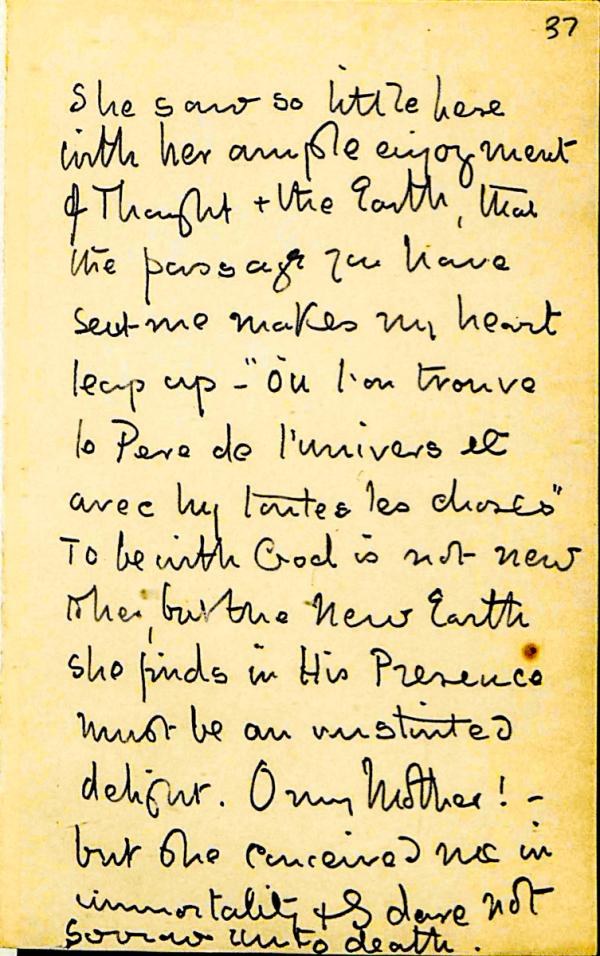 37
She saw so little here
with her ample enjoyment
of Thought + the Earth, that
the passage you have
sent me makes my heart
leap up - "Où l'on trouve
le Pere de l'univers et
avec luy toutes les choses"
To be with God is not new
to her, but the New Earth
she finds in His Presence
must be an unstinted
delight. O my Mother! -
but she conceived me in
immortality & I dare not
sorrow unto death.